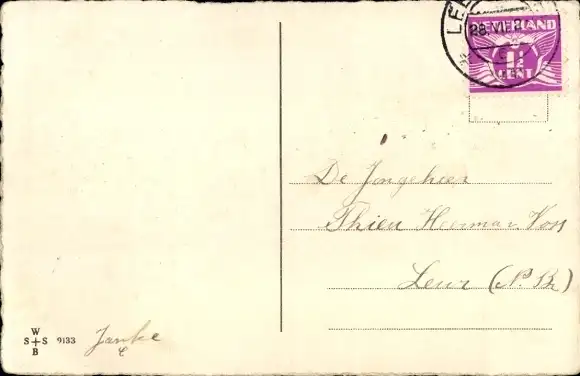 LE
28.VI
NEDERLAND
1½
CENT
De Jongeheer
Thieu Heermar. Voss
Leur (N. Br)
W
S+S 9133
B
Janke